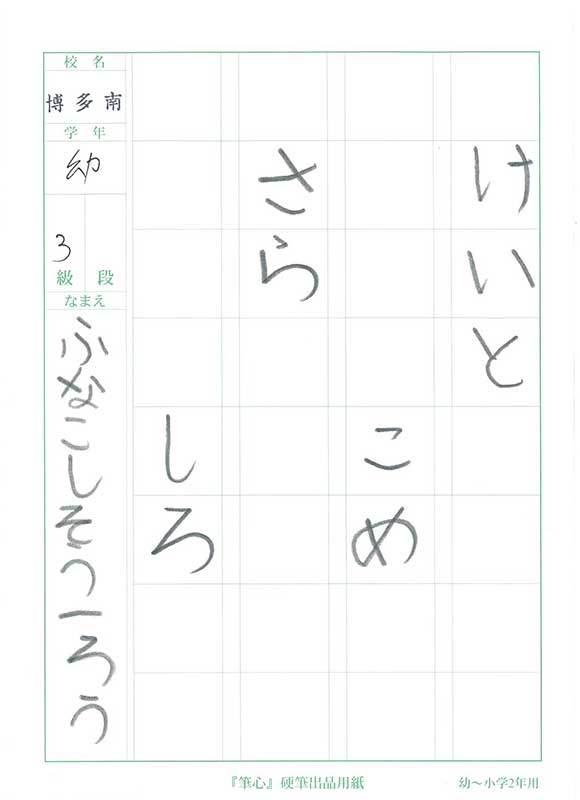 けいと
こめ
さら
しろ
校名
博多南
学年
幼
3
級 段
なまえ
ふなこしそういちろう
『筆心』硬筆出品用紙
幼～小学2年用